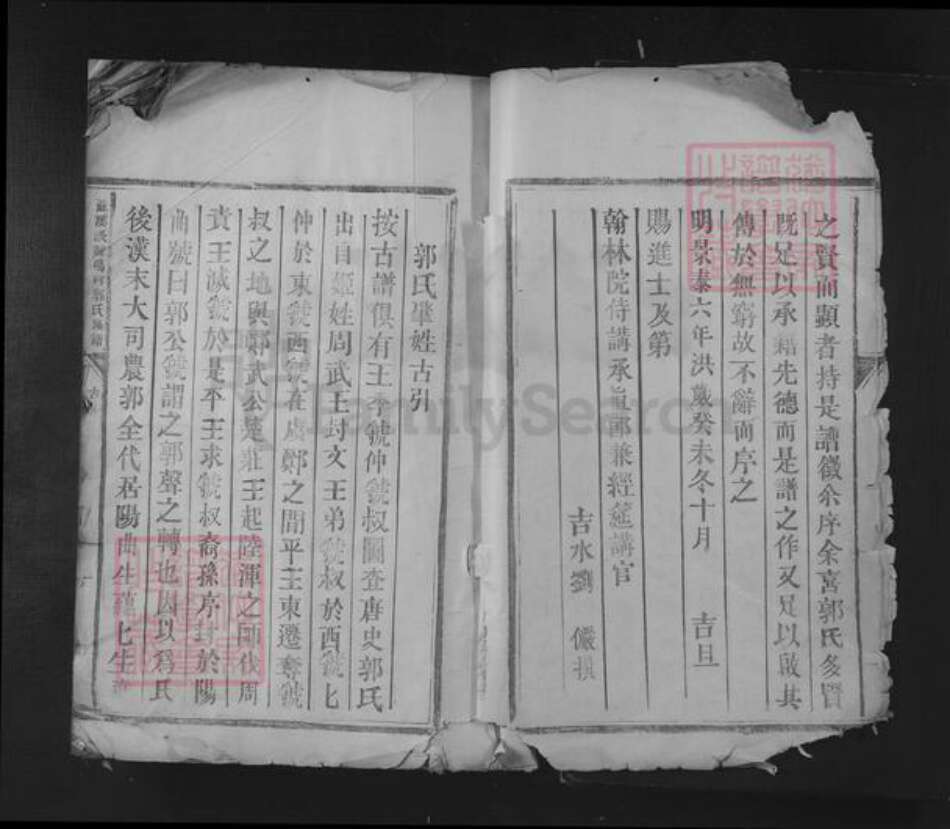 之賢而顯者持是譜徵余序余喜郭氏多賢
既足以承藉先德而是譜之作又足以啟其
傳於無窮故不辭而序之
明景泰六年洪歲癸未冬十月 吉旦
賜進士及第
翰林院侍講承旨郎兼經筵講官
吉水劉 儼撰
郭氏肇姓古引
按古譜俱有王季虢仲虢叔圖查唐史郭氏
出自姬姓周武王封文王弟虢叔於西虢
仲於東虢西虢在虞鄭之間平王東遷奪虢
叔之地與鄭武公楚莊王起陸渾之師伐周
責王滅虢於是平王求虢叔裔孫序封於陽
曲號曰郭公虢謂之郭聲之轉也因以為氏
後漢末大司農郭全代居陽曲生蘊七生
FamilySearch